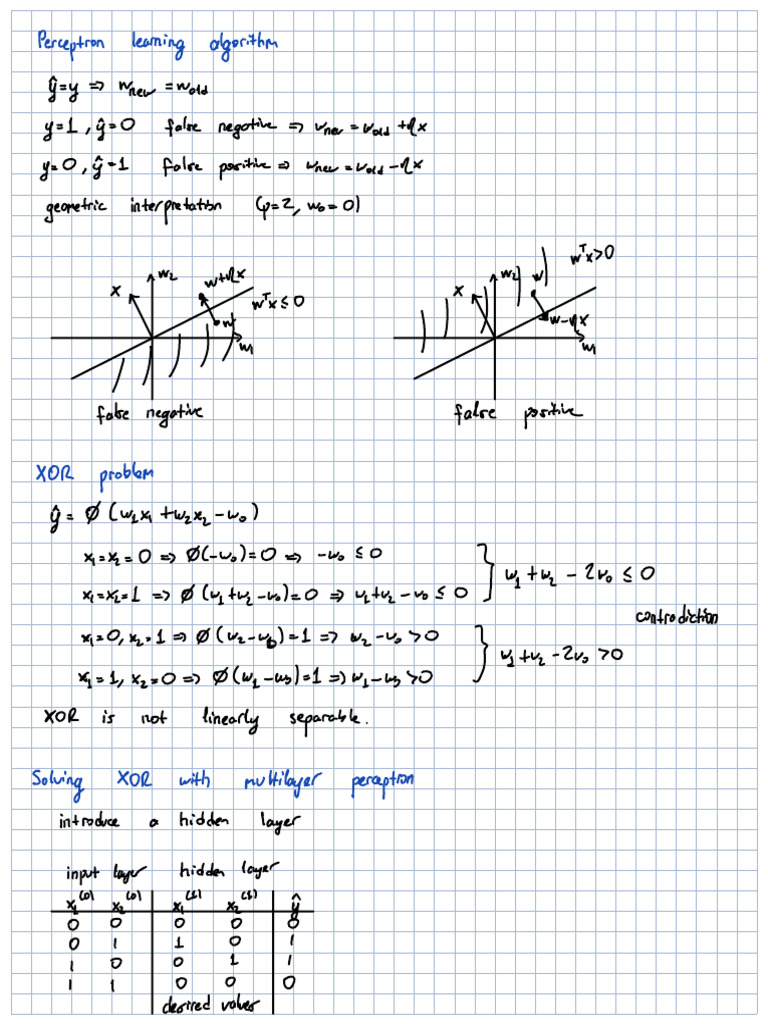 Perceptron learning algorithm
ŷ=y ⇒ w_new = w_old
y=1, ŷ=0 false negative ⇒ w_new = w_old + ηx
y=0, ŷ=1 false positive ⇒ w_new = w_old − ηx
geometric interpretation (p=2, w₀=0)
x w₂ w+ηx wᵀx ≤ 0 w w₁
false negative
x w₂ w wᵀx>0 w−ηx w₁
false positive
XOR problem
ŷ = Ø(w₁x₁ + w₂x₂ − w₀)
x₁=x₂=0 ⇒ Ø(−w₀)=0 ⇒ −w₀ ≤ 0
x₁=x₂=1 ⇒ Ø(w₁+w₂−w₀)=0 ⇒ w₁+w₂−w₀ ≤ 0
w₁+w₂−2w₀ ≤ 0
contradiction
x₁=0, x₂=1 ⇒ Ø(w₂−w₀)=1 ⇒ w₂−w₀ >0
x₁=1, x₂=0 ⇒ Ø(w₁−w₀)=1 ⇒ w₁−w₀ >0
w₁+w₂−2w₀ >0
XOR is not linearly separable.
Solving XOR with multilayer perceptron
introduce a hidden layer
input layer hidden layer
x₁⁽⁰⁾ x₂⁽⁰⁾ x₁⁽¹⁾ x₂⁽¹⁾ ŷ
0 0 0 0 0
0 1 1 0 1
1 0 0 1 1
1 1 0 0 0
desired values